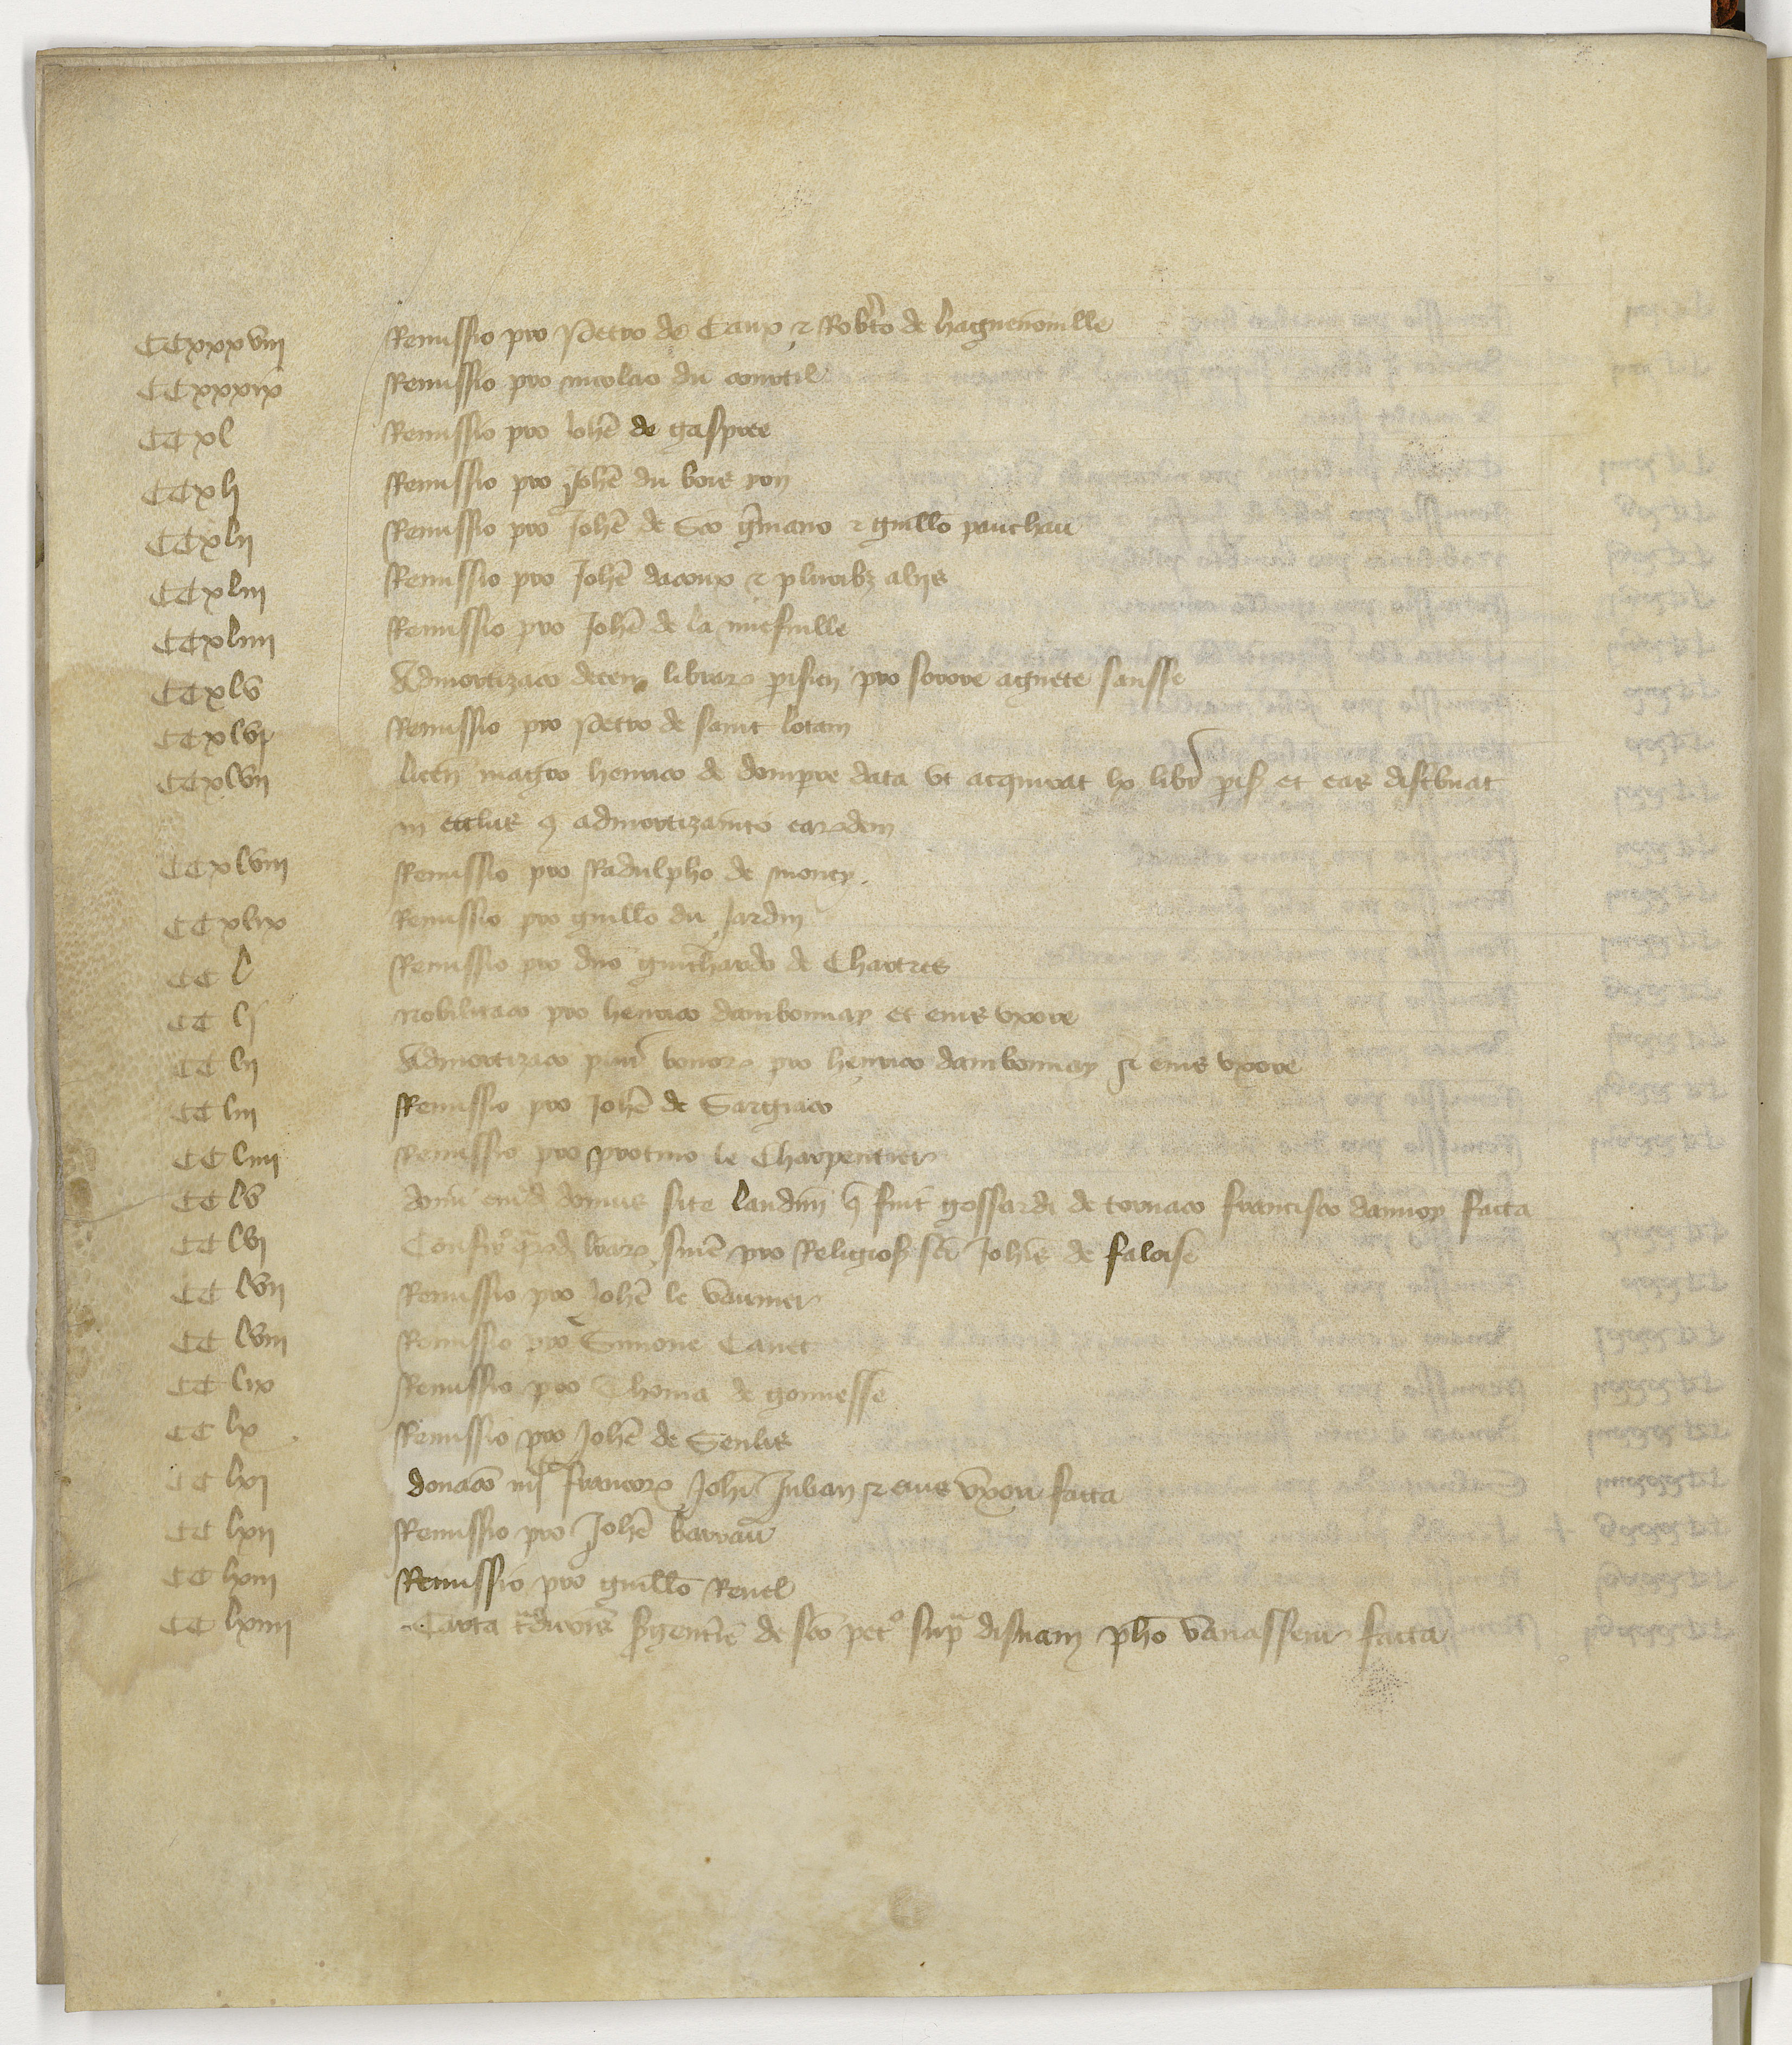 CCxxxviii Remissio pro Petro de Caux et Robto de haguenouille
CCxxxix Remissio pro nicolao du courtil
CCxl Remissio pro Johe de gaspree
CCxli Remissio pro Johe du bois yon
CCxlii Remissio pro Johe de Sco gmano et guillo pauchau
CCxliii Remissio pro Johe dacoux et pluribz aliis
CCxliiii Remissio pro Johe de la nuefuille
CCxlv Admortizaco decem librar parisien pro sorore agnete sausse
CCxlvi Remissio pro Petro de saint lotain
CCxlvii licen magro henrico de dompre data vt acquirat lx libr paris et eas distbuat
in ecclus admortizanito earumdem
CCxlviii Remissio pro Radulpho de moncy
CCxlix Remissio pro guillo du Jardin
CC l Remissio pro dno guichardo de Chartres
CC li nobilitaco pro henrico dambonnay et eius vxore
CC lii Admortizaco plur bonor pro henrico dambonnay et eius vxore
CC liii Remissio pro Johe de Sargiaco
CC liiii Remissio pro protino le Charpentier
CC lv domus site landun fuit gossardi de tornaco francisco daunoy facta
CC lvi Confir pro Religios sci Johis de faloise
CC lvii Remissio pro Johe le vaumer
CC lviii Remissio pro Simone Cauet
CC lix Remissio pro Thoma de gonnesse
CC lx Remissio pro Johe de Senlis
CC lxi donaco iiic francor Johi Juban et eius vxori facta
CC lxii Remissio pro Johe barrau
CC lxiii Remissio pro guillo Reuel
CC lxiiii Carta sgenterie de sco petro supra disuam pho vanasseur facta